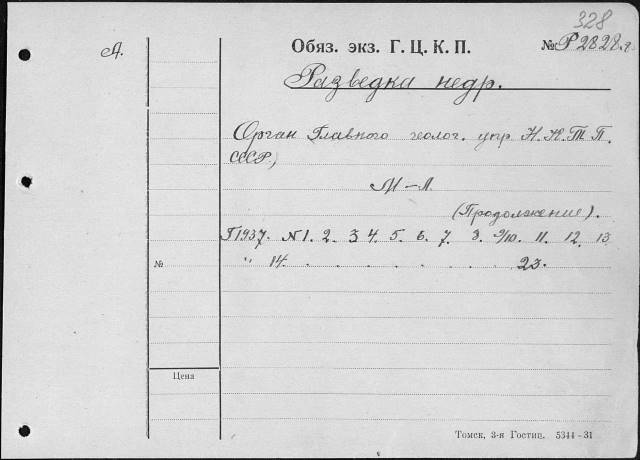 328
А.
Обяз. экз. Г. Ц. К. П. № Р2828.г
Разведка недр.
Орган Главного геолог. упр. Н.К.Т.П.
СССР,
М–Л.
(Продолжение).
Г1937. N 1. 2. 3 4. 5. 6. 7. 8. 9/10. 11. 12. 13
№ " 14. . . . . . . . 23.
Цена
Томск, 3-я Гостип. 5344–31